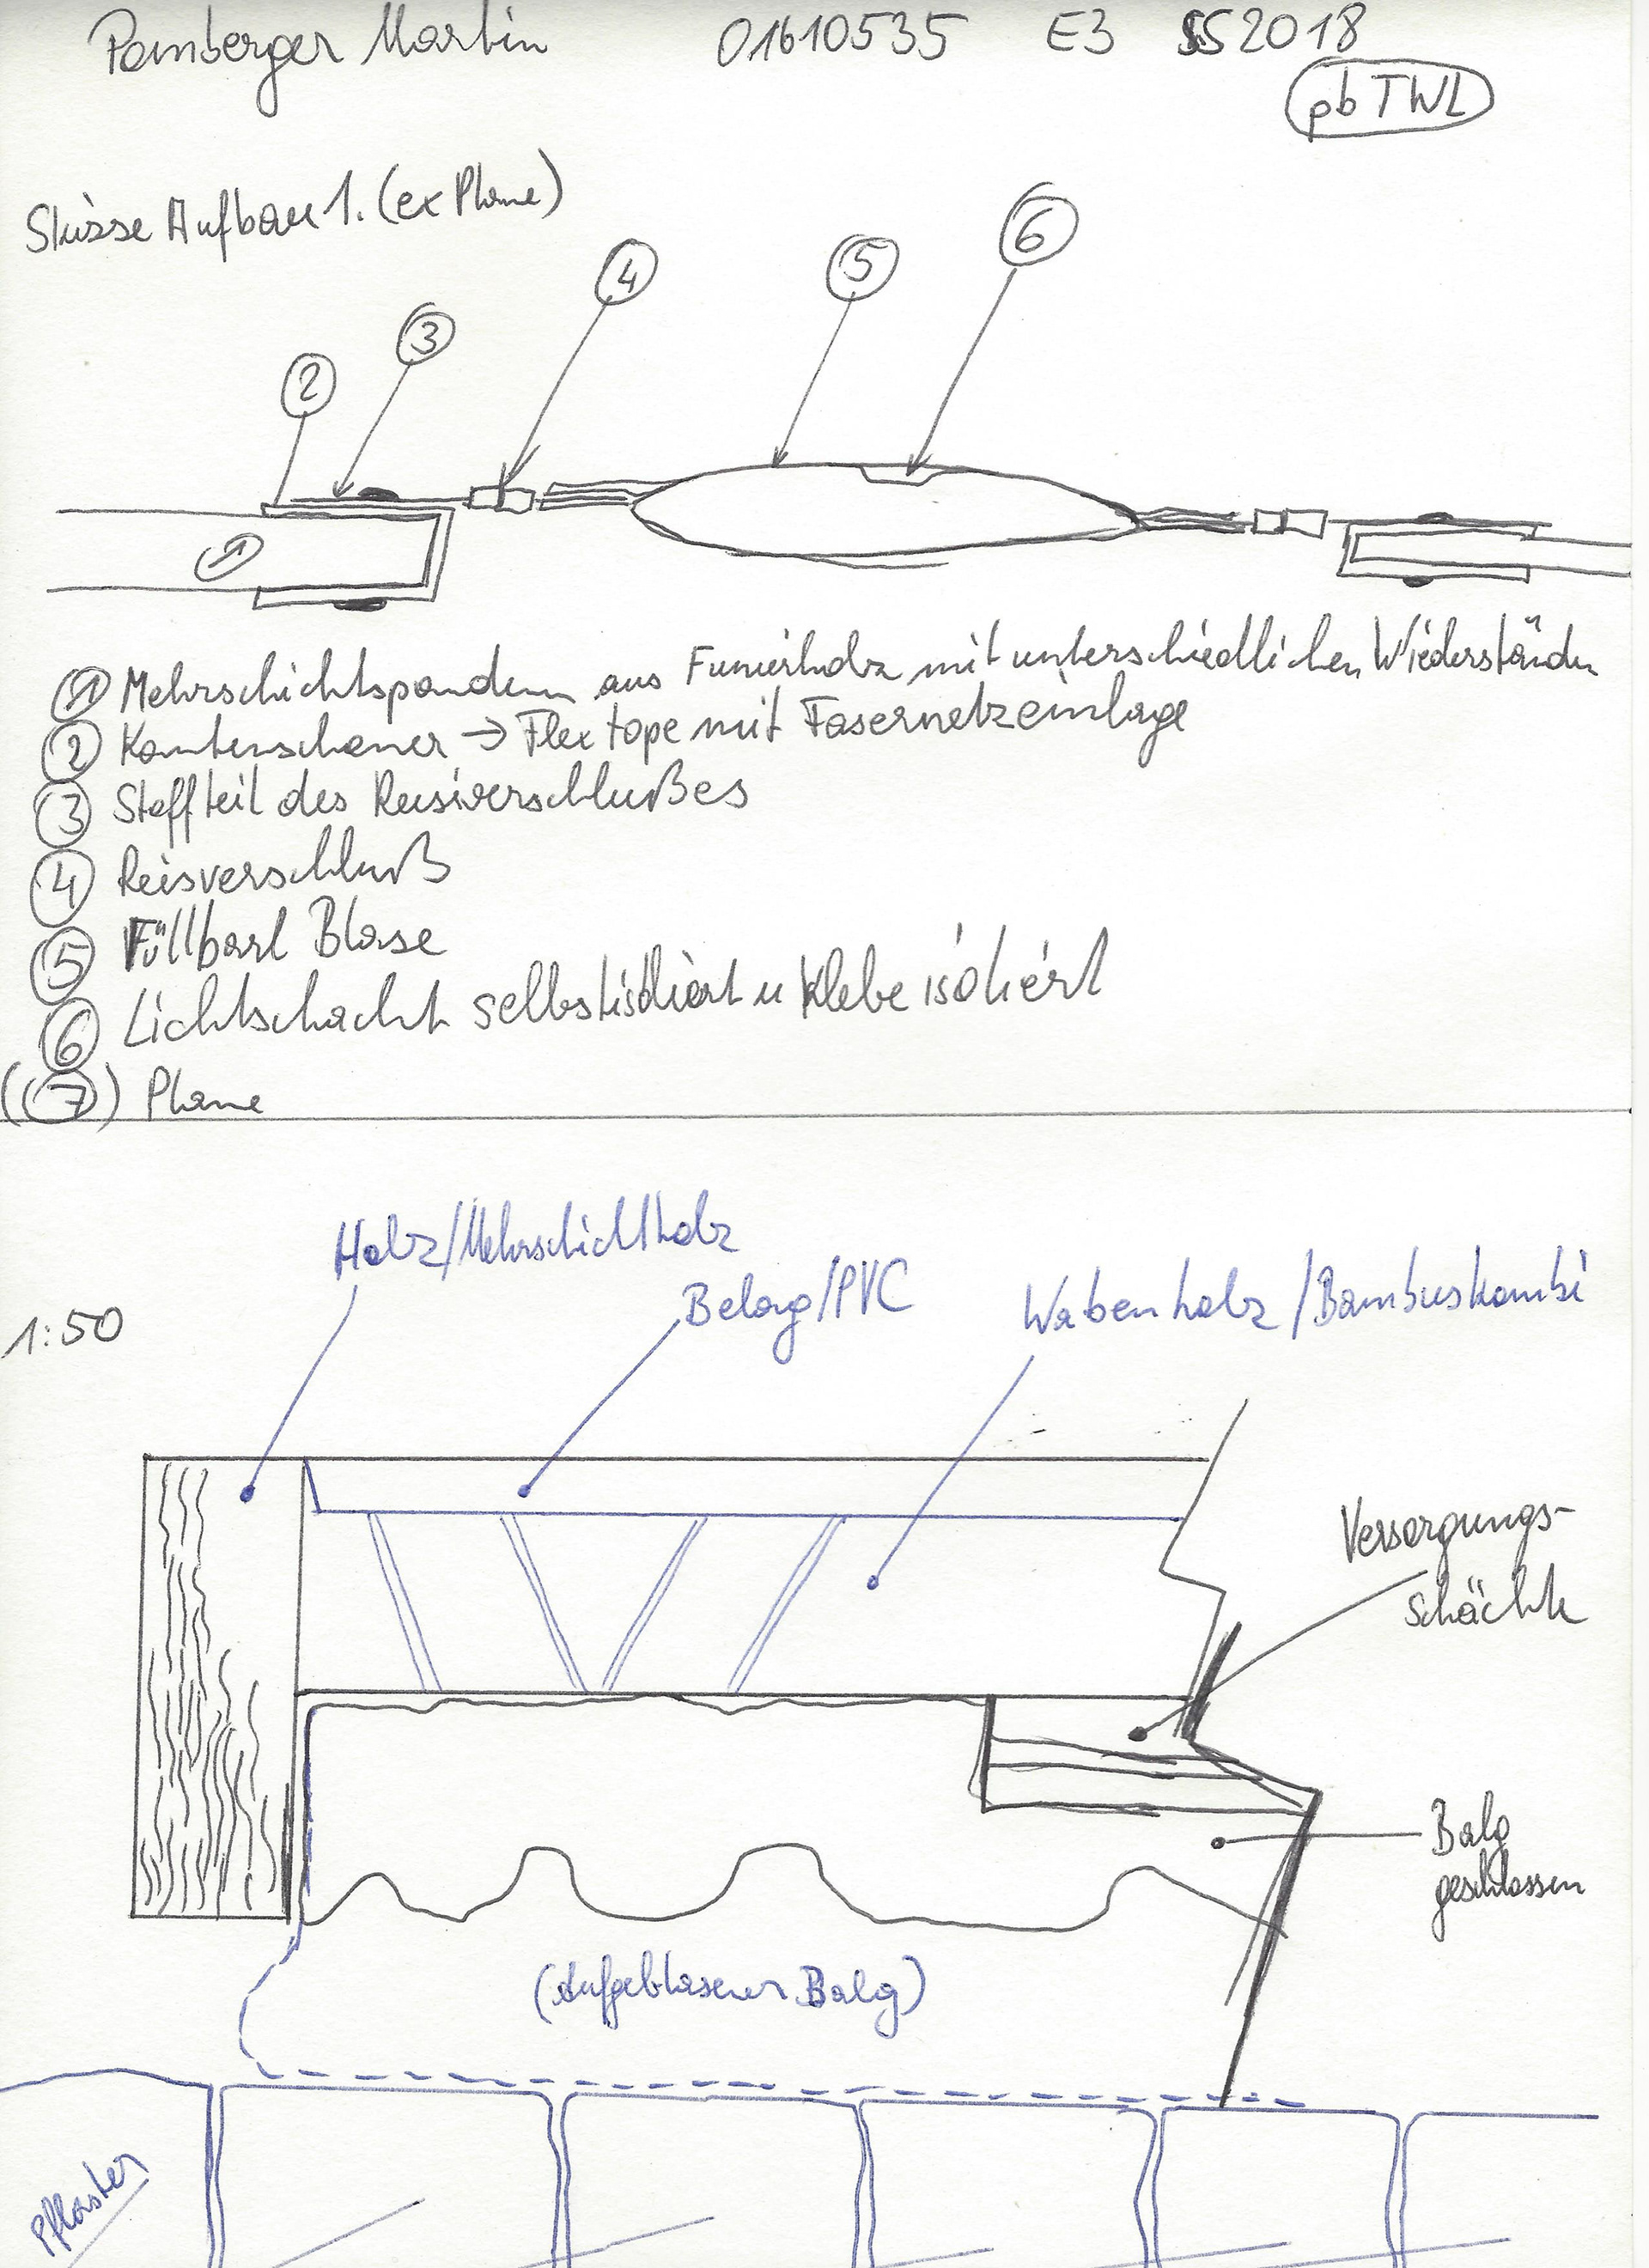 Pamberger Martin 01610535 E3 SS2018
pb TWL
Skizze Aufbau 1. (ex Plane)
6
5
4
3
2
1
1 Mehrschichtspanden aus Funierholz mit unterschiedlichen Wiederständen
2 Kantenschoner → Flextape mit Fasernetzeinlage
3 Stoffteil des Reisverschlußes
4 Reisverschluß
5 Füllbarl Blase
6 Lichtschacht selbstisoliert u Klebe isoliert
((7)) Plane
Holz/Mehrschichtholz
Belag/PVC
Wabenholz/Bambuskombi
1:50
Versorgungs-
schächte
Balg
geschlossen
(Aufgeblasener Balg)
Pflaster